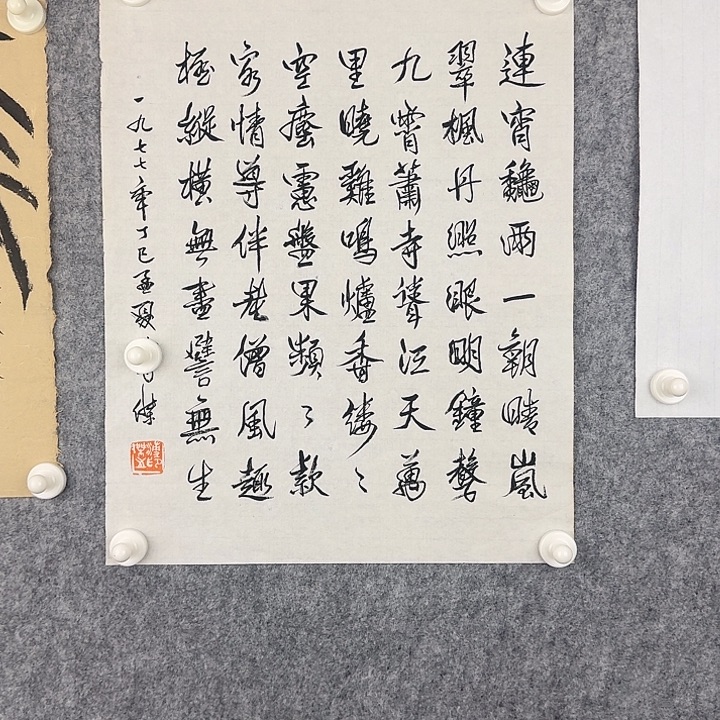 連宵龝雨一朝晴嵐
翠楓丹照眼明鐘聲
九霄蕭寺聳江天萬
里曉雞鳴爐香縷〻
空塵慮盤果頻〻款
客情導伴老僧風趣
極縱橫無盡譬無生
一九七七年丁巳孟夏 傑